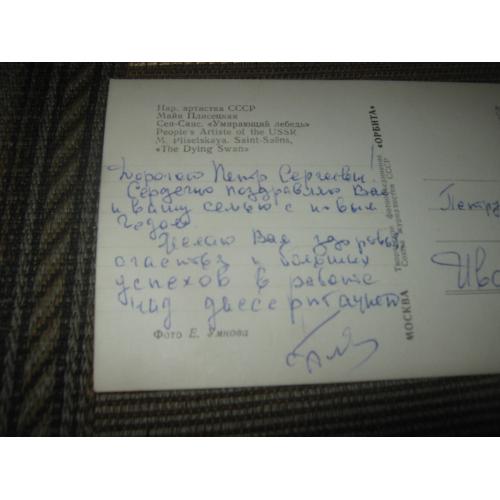 Нар. артистка СССР
Майя Плисецкая
Сен-Санс. «Умирающий лебедь»
People's Artiste of the USSR
M. Pliselskaya. Saint-Saëns,
«The Dying Swan»
Дорогой Петр Сергеевич!
Сердечно поздравляю Вас
и вашу семью с новым
Годом.
Желаю Вам здоровья
счастья и больших
успехов в работе
над диссертацией
Фото Е. Умнова
МОСКВА
Союза журналистов СССР
«ОРБИТА»
Петру
Ива